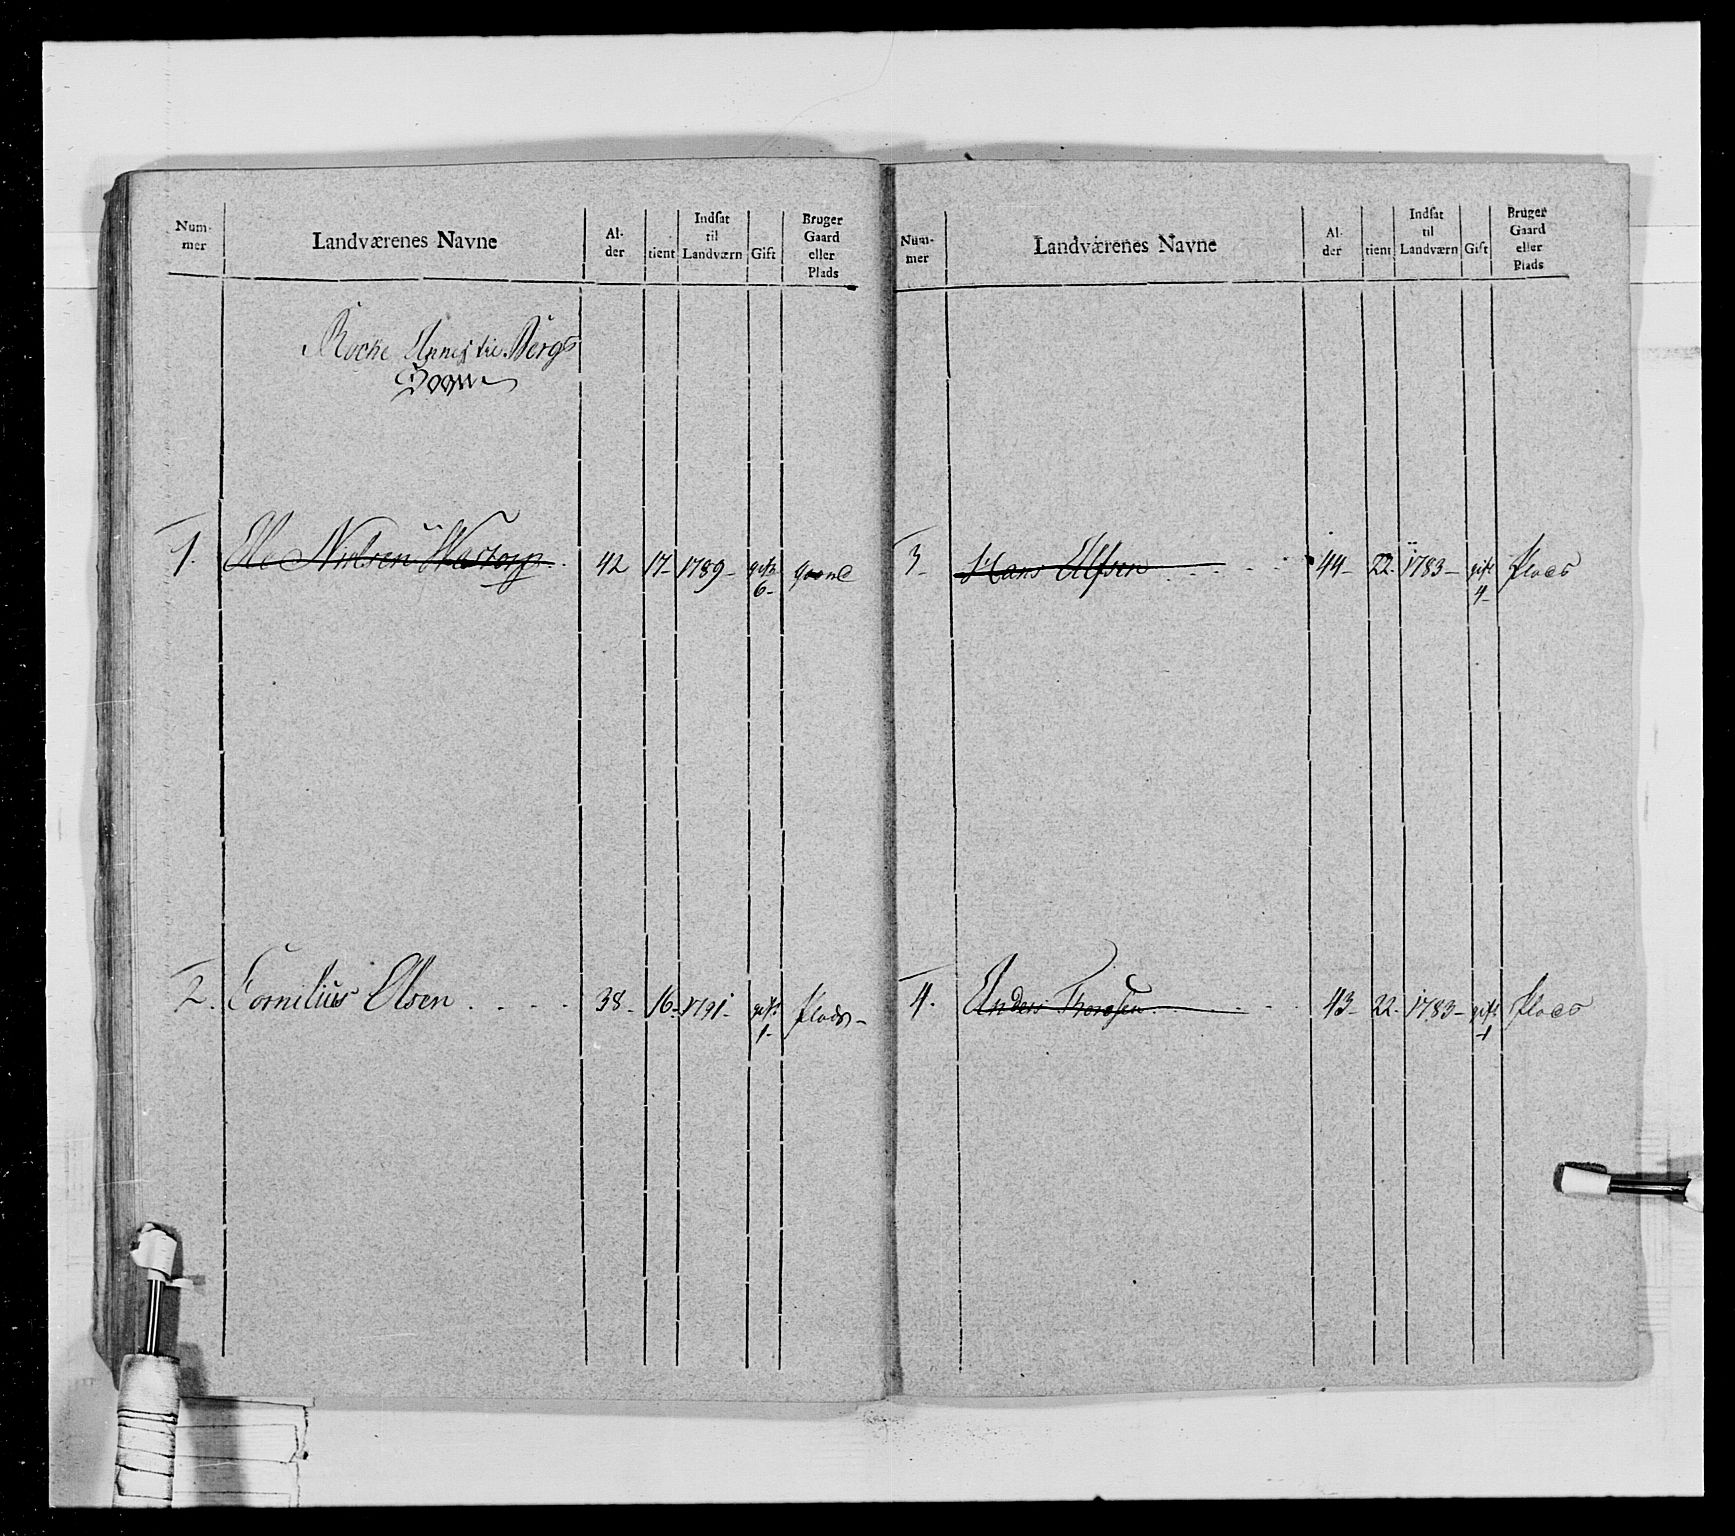 Num-
mer
Landværenes Navne
Al-
der
tient
Indsat
til
Landværn
Gift
Bruger
Gaard
eller
Plads
Rocke Annex til Bergs
Sogn
1. Ole Nielsen 42 17- 1789- gift gaard
6-
2. Cornilius Olsen 38- 16- 1791- gift plads-
1-
Num-
mer
Landværenes Navne
Al-
der
tient
Indsat
til
Landværn
Gift
Bruger
Gaard
eller
Plads
3- Hans Olfsen 44- 22- 1783- gift plads
4-
4. Anders 43- 22- 1783- gift plads
1